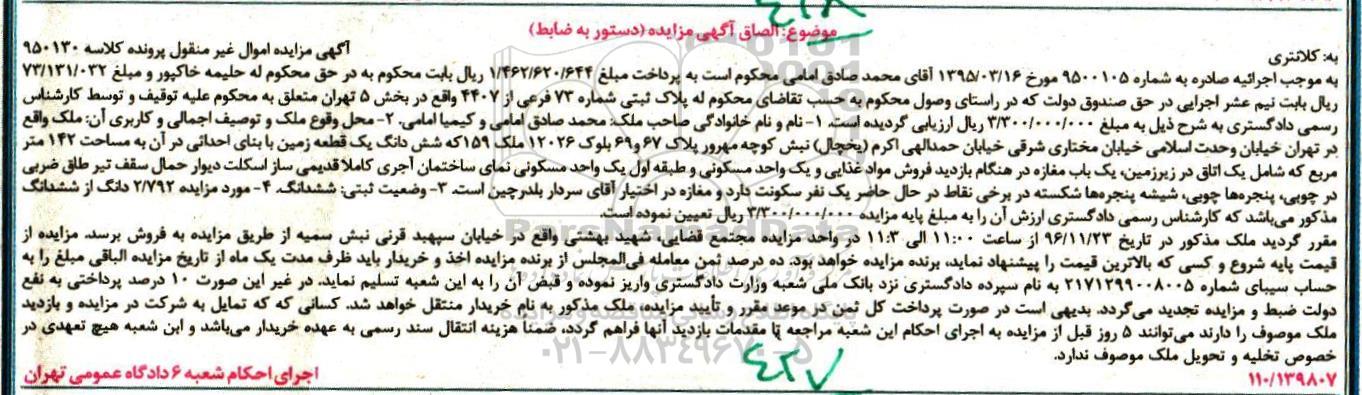 ۴۲۸
موضوع: الصاق آگهی مزایده (دستور به ضابط)
به: کلانتری
آگهی مزایده اموال غیر منقول پرونده کلاسه ۹۵۰۱۳۰
به موجب اجرائیه صادره به شماره ۹۵۰۰۱۰۵ مورخ ۱۳۹۵/۰۳/۱۶ آقای محمد صادق امامی محکوم است به پرداخت مبلغ ۱/۴۶۲/۶۲۰/۶۴۴ ریال بابت محکوم به در حق محکوم له حلیمه خاکپور و مبلغ ۷۳/۱۳۱/۰۳۲
ریال بابت نیم عشر اجرایی در حق صندوق دولت که در راستای وصول محکوم به حسب تقاضای محکوم له پلاک ثبتی شماره ۷۳ فرعی از ۴۴۰۷ واقع در بخش ۵ تهران متعلق به محکوم علیه توقیف و توسط کارشناس
رسمی دادگستری به شرح ذیل به مبلغ ۳/۳۰۰/۰۰۰/۰۰۰ ریال ارزیابی گردیده است. ۱- نام و نام خانوادگی صاحب ملک: محمد صادق امامی و کیمیا امامی. ۲- محل وقوع ملک و توصیف اجمالی و کاربری آن: ملک واقع
در تهران خیابان وحدت اسلامی خیابان مختاری شرقی خیابان حمدالهی اکرم (یخچال) نبش کوچه مهرور پلاک ۶۷ و ۶۹ بلوک ۱۲۰۲۶ ملک ۱۵۹ که شش دانگ یک قطعه زمین با بنای احداثی در آن به مساحت ۱۴۲ متر
مربع که شامل یک اتاق در زیرزمین، یک باب مغازه در هنگام بازدید فروش مواد غذایی و یک واحد مسکونی و طبقه اول یک واحد مسکونی نمای ساختمان آجری کاملا قدیمی ساز اسکلت دیوار حمال سقف تیر طاق ضربی
در چوبی، پنجره‌ها چوبی، شیشه پنجره‌ها شکسته در برخی نقاط در حال حاضر یک نفر سکونت دارد و مغازه در اختیار آقای سردار بلدرچین است. ۳- وضعیت ثبتی: ششدانگ. ۴- مورد مزایده ۲/۷۹۲ دانگ از ششدانگ
مذکور می‌باشد که کارشناس رسمی دادگستری ارزش آن را به مبلغ پایه مزایده ۳/۳۰۰/۰۰۰/۰۰۰ ریال تعیین نموده است.
مقرر گردید ملک مذکور در تاریخ ۹۶/۱۱/۲۳ از ساعت ۱۱:۰۰ الی ۱۱:۳۰ در واحد مزایده مجتمع قضایی، شهید بهشتی واقع در خیابان سپهبد قرنی نبش سمیه از طریق مزایده به فروش برسد. مزایده از
قیمت پایه شروع و کسی که بالاترین قیمت را پیشنهاد نماید، برنده مزایده خواهد بود. ده درصد ثمن معامله فی‌المجلس از برنده مزایده اخذ و خریدار باید ظرف مدت یک ماه از تاریخ مزایده الباقی مبلغ را به
حساب سیبای شماره ۲۱۷۱۲۹۹۰۰۸۰۰۵ به نام سپرده دادگستری نزد بانک ملی شعبه وزارت دادگستری واریز نموده و قبض آن را به این شعبه تسلیم نماید. در غیر این صورت ۱۰ درصد پرداختی به نفع
دولت ضبط و مزایده تجدید می‌گردد. بدیهی است در صورت پرداخت کل ثمن در موعد مقرر و تأیید مزایده، ملک مذکور به نام خریدار منتقل خواهد شد. کسانی که تمایل به شرکت در مزایده و بازدید
ملک موصوف را دارند می‌توانند ۵ روز قبل از مزایده به اجرای احکام این شعبه مراجعه تا مقدمات بازدید آنها فراهم گردد، ضمناً هزینه انتقال سند رسمی به عهده خریدار می‌باشد و این شعبه هیچ تعهدی در
خصوص تخلیه و تحویل ملک موصوف ندارد.
۴۲۷
۱۱۰/۱۳۹۸۰۷
اجرای احکام شعبه ۶ دادگاه عمومی تهران
ParsNamadData
۰۲۱-۸۸۳۴۹۶۷۰-۵